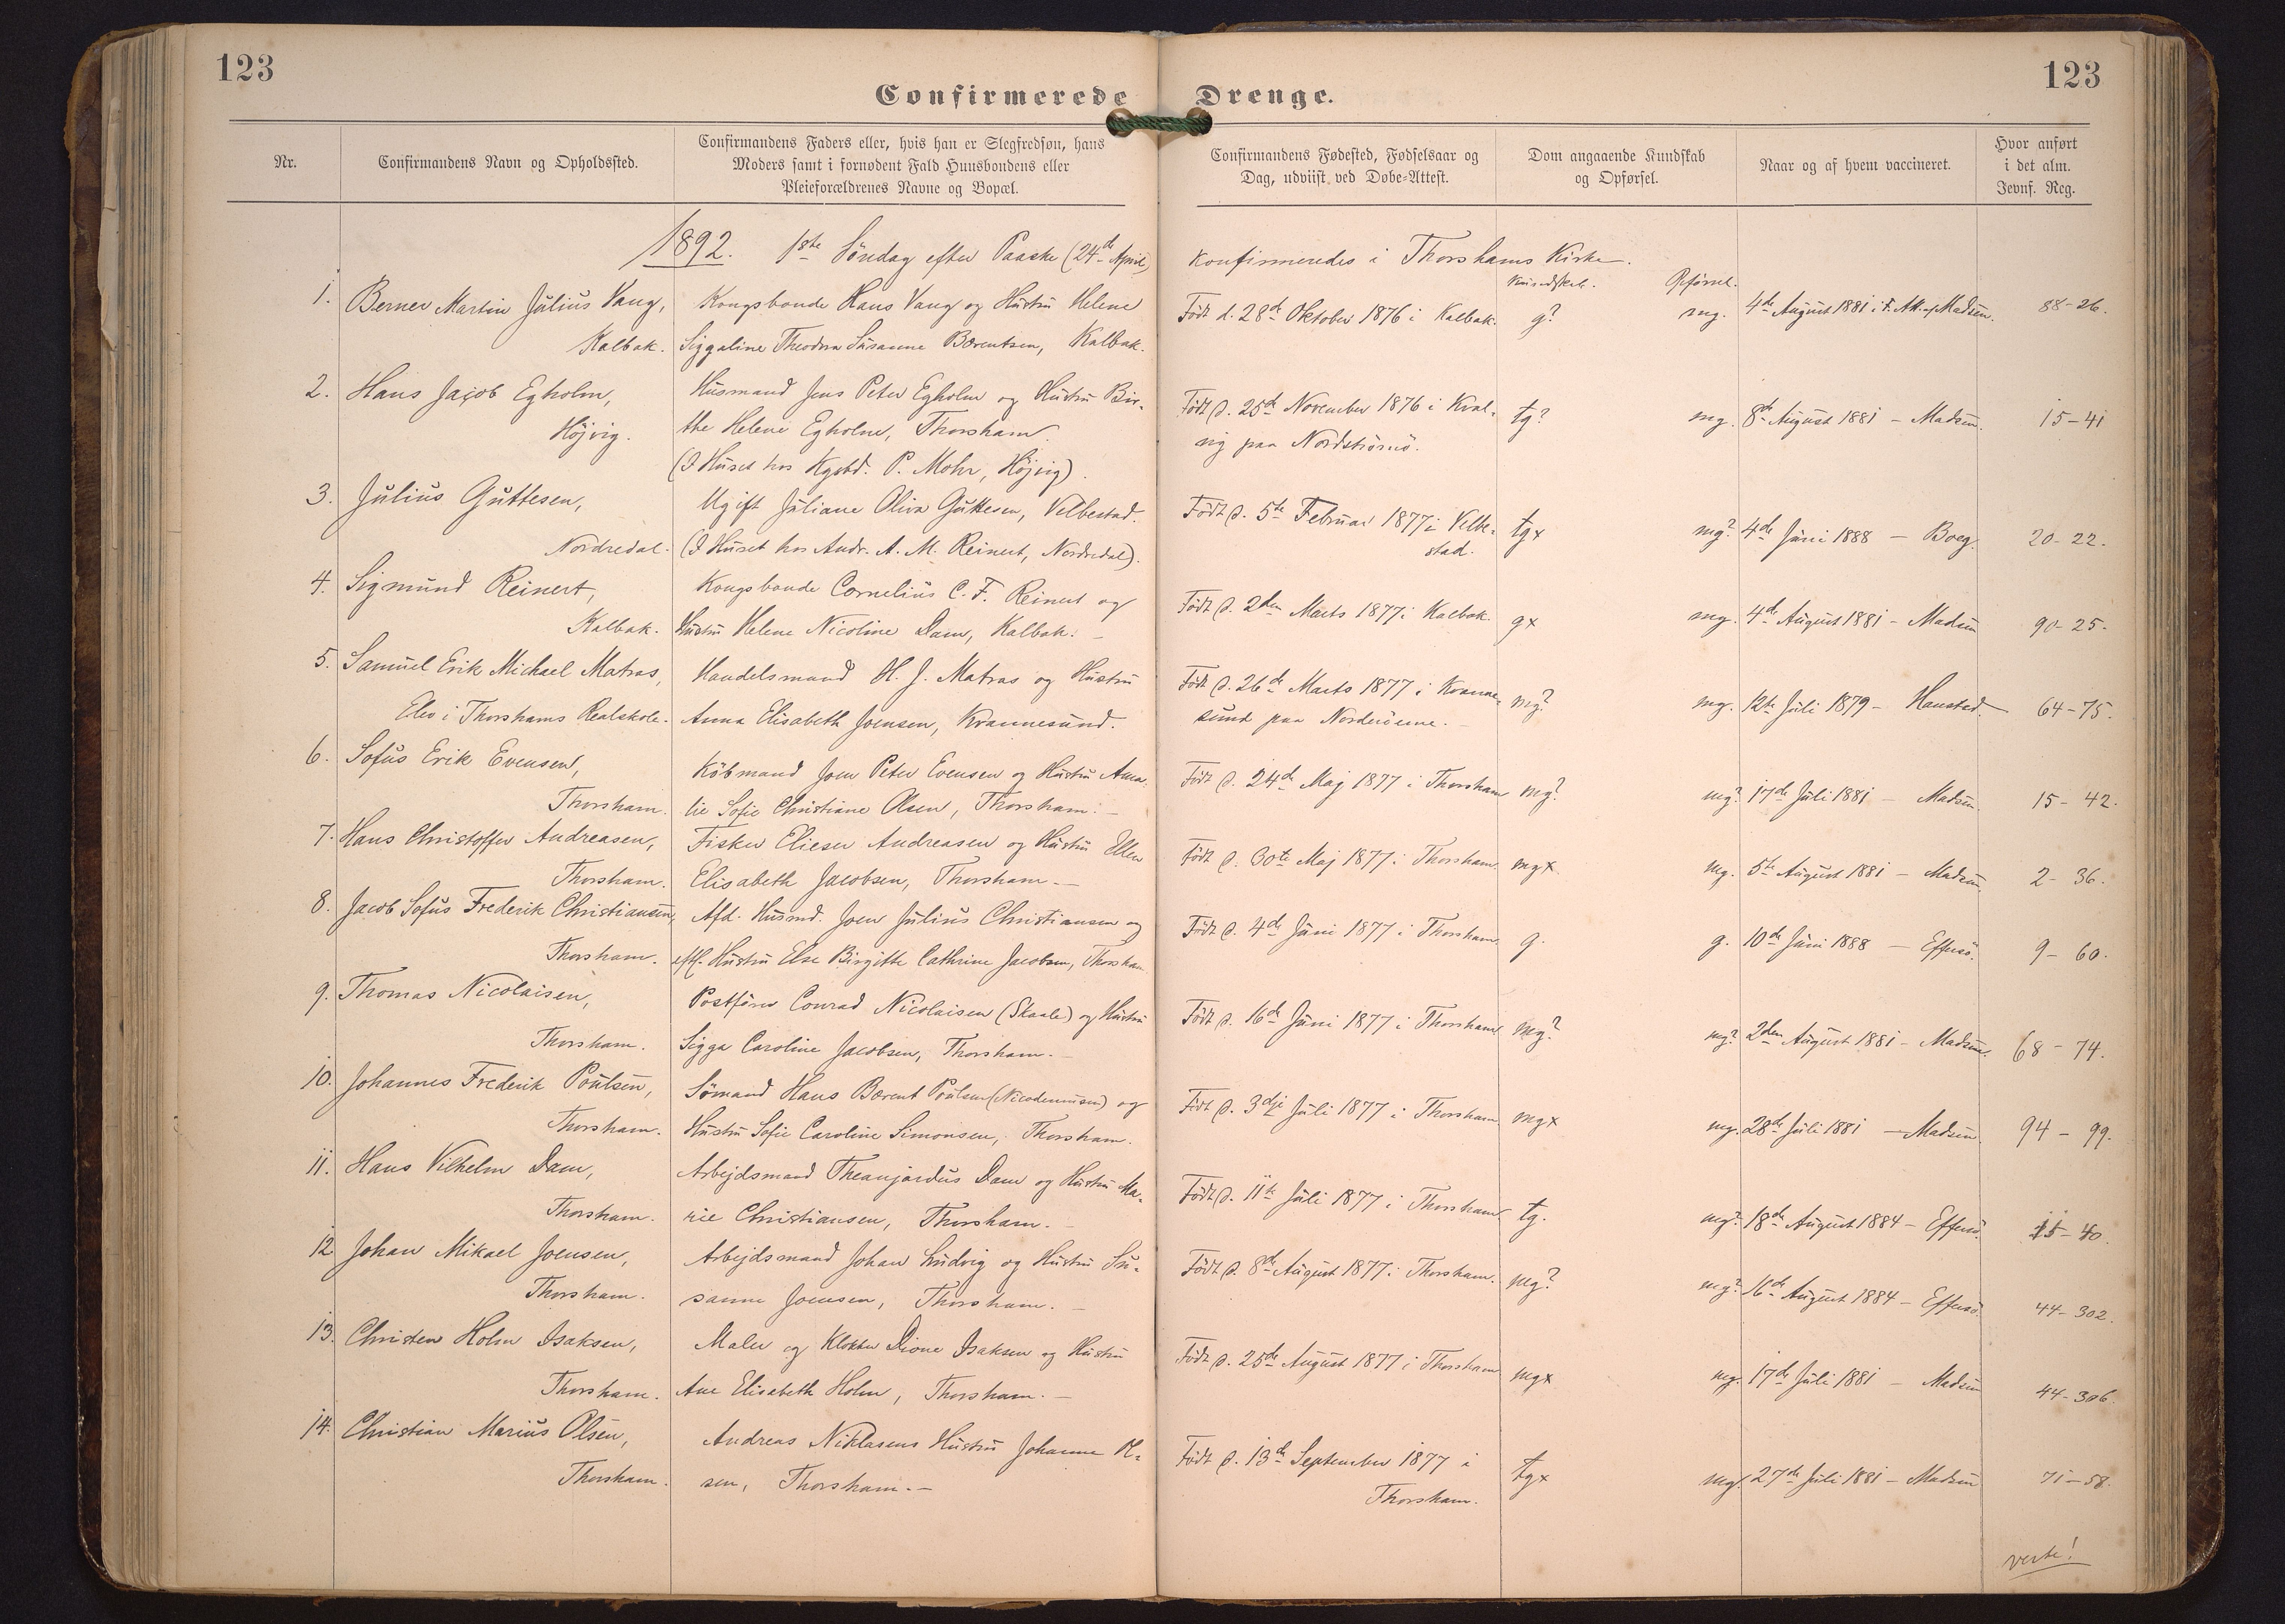 123
123
Confirmerede Drenge.
Nr.
Confirmandens Navn og Opholdssted.
Confirmandens Faders eller, hvis han er Slegfredsøn, hans
Moders samt i fornødent Fald Huusbondens eller
Pleieforældrenes Navne og Bopæl.
Confirmandens Fødested, Fødselsaar og
Dag, udviist ved Døbe-Attest.
Dom angaaende Kundskab
og Opførsel.
Naar og af hvem vaccineret.
Hvor anført
i det alm.
Jevnf. Reg.
1892. 1ste Söndag efter Paaske (24de April) konfirmeredes i Thorshams Kirke.
Kundskab. Opförsel.
1. Berner Martin Julius Vang, Kongsbonde Hans Vang og Hustru Helene Født d. 28de Oktober 1876 i Kalbak. g? mg. 4de August 1881 i Madsen. 88-26.
Kalbak. Siggaline Theodora Susanne Bærentsen, Kalbak.
2. Hans Jacob Egholm, Husmand Jens Peter Egholm og Hustru Bir- Født d. 25de November 1876 i Kval- tg? mg. 8de August 1881 – Madsen. 15-41
Höjvig. the Helene Egholm, Thorsham. vig paa Nordströmö.
(I Huset hos Kgsbd. P. Mohr, Höjvig).
3. Julius Guttesen, Ugift Juliane Oliva Guttesen, Velbestad. Født d. 5te Februar 1877 i Velbe- tgx mg? 4de Juni 1888 – Boeg. 20-22.
Nordredal. (I Huset hos Andr. A. M. Reinert, Nordredal). stad.
4. Sigmund Reinert, Kongsbonde Cornelius C. F. Reinert og Født d. 2den Marts 1877 i Kalbak. gx mg. 4de August 1881 – Madsen 90-25.
Kalbak. Hustru Helene Nicoline Dam, Kalbak. –
5. Samuel Erik Michael Matras, Handelsmand H. J. Matras og Hustru Født d. 26de Marts 1877 i Kvanne- mg? mg. 12te Juli 1879 – Hansted. 64-75.
Elev i Thorshams Realskole. Anna Elisabeth Joensen, Kvannesund. sund paa Norderöerne.
6. Sofus Erik Evensen, Köbmand Joen Peter Evensen og Hustru Ama- Født d. 24de Maj 1877 i Thorsham mg? mg? 17de Juli 1881 – Madsen. 15-42.
Thorsham. lie Sofie Christiane Olsen, Thorsham. –
7. Hans Christoffer Andreasen, Fisker Elieser Andreasen og Hustru Ellen Født d. 30te Maj 1877 i Thorsham. mgx mg. 5te August 1881 – Madsen. 2-36.
Thorsham. Elisabeth Jacobsen, Thorsham. –
8. Jacob Sofus Frederik Christiansen, Afd. Husmd. Joen Julius Christiansen og Født d. 4de Juni 1877 i Thorsham. g. g. 10de Juni 1888 – Effersö. 9-60.
Thorsham. eftl. Hustru Else Birgitte Cathrine Jacobsen, Thorsham.
9. Thomas Nicolaisen, Postförer Conrad Nicolaisen (Skaale) og Hustru Født d. 16de Juni 1877 i Thorsham mg? mg? 2den August 1881 – Madsen. 68-74.
Thorsham. Sigga Caroline Jacobsen, Thorsham. –
10. Johannes Frederik Poulsen, Sömand Hans Bærent Poulsen (Nicodemussen) og Født d. 3dje Juli 1877 i Thorsham mgx mg. 28de Juli 1881 – Madsen. 94-99.
Thorsham. Hustru Sofie Caroline Simonsen, Thorsham.
11. Hans Vilhelm Dam, Arbejdsmand Theanjardus Dam og Hustru Ma- Født d. 11te Juli 1877 i Thorsham tg. mg? 18de August 1884 – Effersö. 15-40.
Thorsham. rie Christiansen, Thorsham. –
12 Johan Mikael Joensen, Arbejdsmand Johan Ludvig og Hustru Su- Født d. 8de August 1877 i Thorsham. mg? mg? 16de August 1884 – Effersö. 44-302.
Thorsham. sanne Joensen, Thorsham. –
13. Christen Holm Isaksen, Maler og Klokker Dione Isaksen og Hustru Født d. 25de August 1877 i Thorsham mgx mg. 17de Juli 1881 – Madsen 44-306.
Thorsham. Ane Elisabeth Holm, Thorsham. –
14. Christian Marius Olsen, Andreas Niklasens Hustru Johanne Ol- Født d. 13de September 1877 i tgx mg. 27de Juli 1881 – Madsen 71-58.
Thorsham. sen, Thorsham. – Thorsham.
verte!